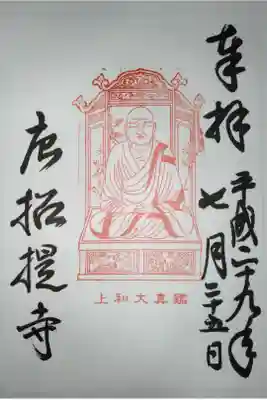 奉拝
平成二十九年
七月二十五日
上和大真鑑
唐招提寺